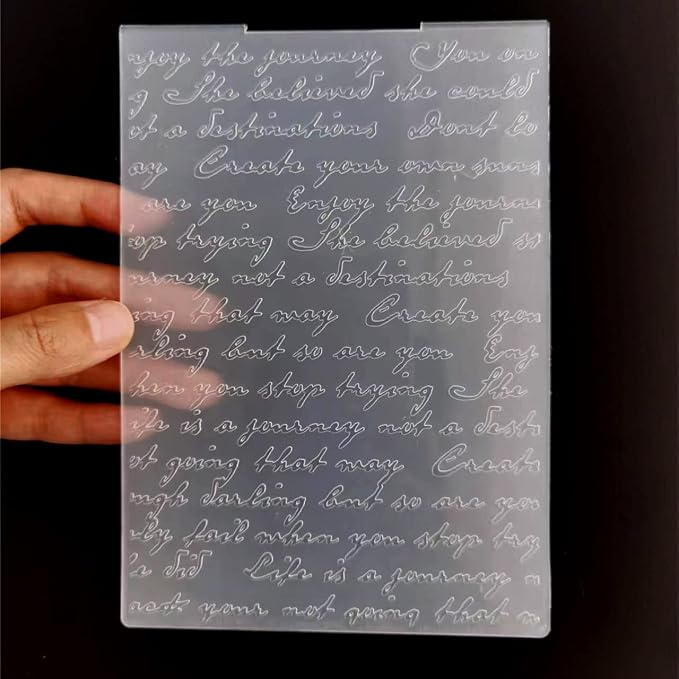 njoy the journey You on
g She believed she could
ot a destinations Dont lo
ay Create your own suns
are you Enjoy the journ
op trying She believed s
urney not a destinations
ing that way Create you
rling but so are you Enj
hen you stop trying She
ife is a journey not a desti
ot going that way Create
ugh darling but so are you
ly fail when you stop try
e did Life is a journey n
your not going that n